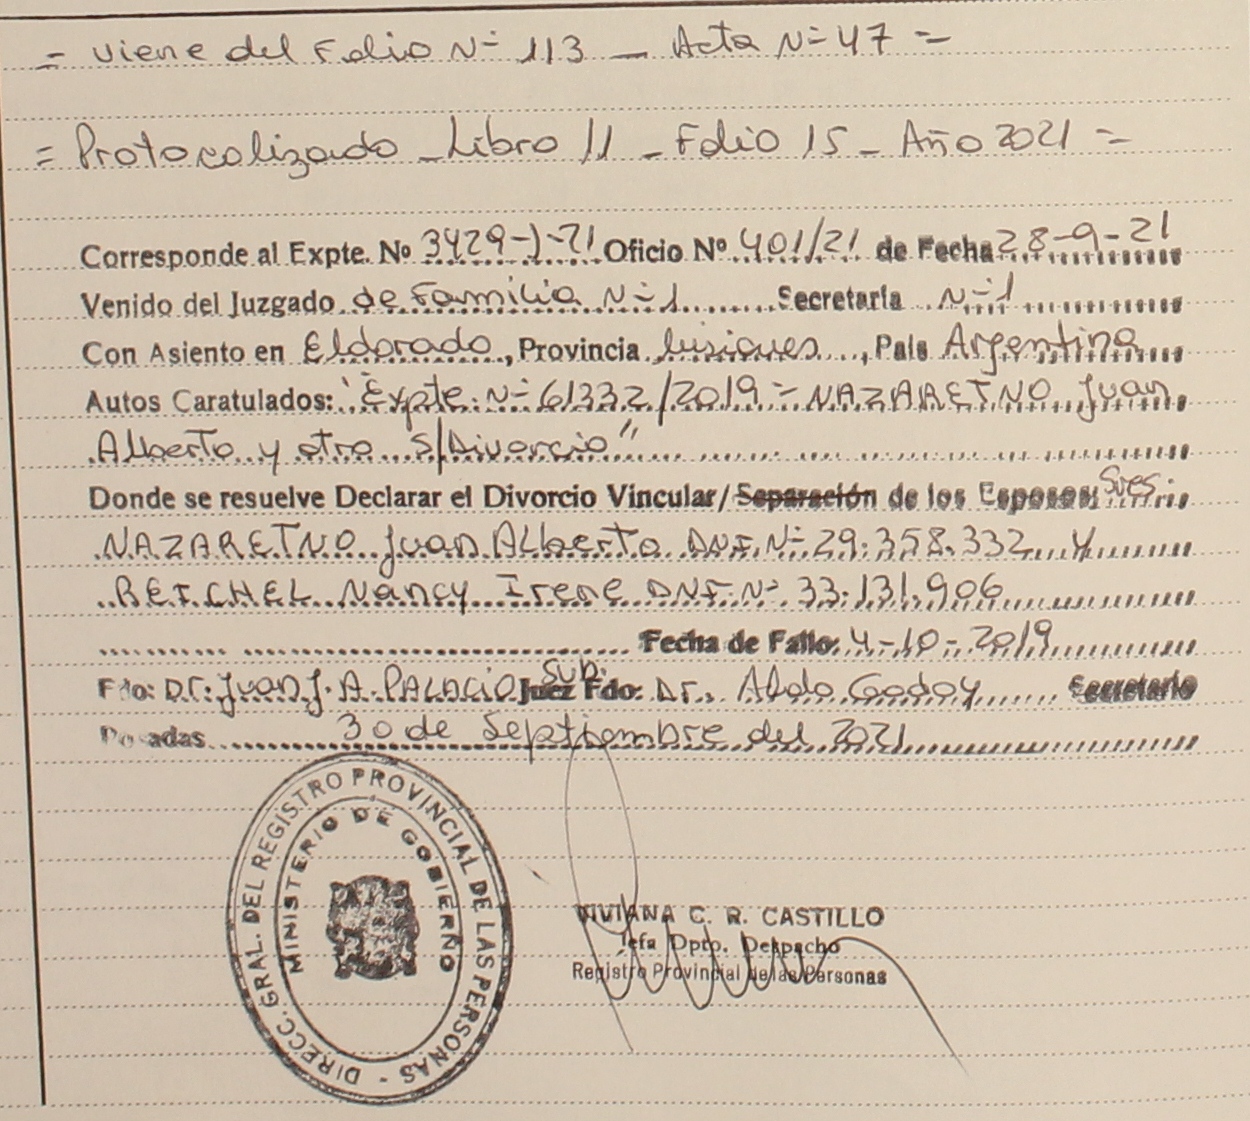 = Viene del Folio Nº 113 _ Acta Nº 47 =
= Protocolizado _ Libro 11 _ Folio 15 _ Año 2021 =
Corresponde al Expte. Nº 3429-J-21 Oficio Nº 401/21 de Fecha 28-9-21
Venido del Juzgado de Familia Nº 1 Secretaría Nº 1
Con Asiento en Eldorado, Provincia Misiones, País Argentina
Autos Caratulados: "Expte. Nº 61332/2019 - NAZARETNO Juan
Alberto y otro S/Divorcio"
Donde se resuelve Declarar el Divorcio Vincular/Separación de los Esposos: Sres.
NAZARETNO Juan Alberto DNI. Nº 29.358.332 y
REICHEL Nancy Irene DNI. Nº 33.131.906
Fecha de Fallo: 4-10-2019
Fdo: Dr. Juan J. A. PALACIO Sub. Juez Fdo: Dr. Aldo Godoy Secretario
Posadas 30 de Septiembre del 2021
DIRECC. GRAL. DEL REGISTRO PROVINCIAL DE LAS PERSONAS -
MINISTERIO DE GOBIERNO
VIVIANA C. R. CASTILLO
Jefa Dpto. Despacho
Registro Provincial de las Personas